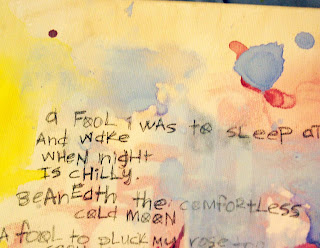 a FOOL i was to sLeep at
And wake
wHEN night
IS CHiLLY.
BeaNEath the comFORtLess
cold MOON
A FOOL to PLUCK MY rose